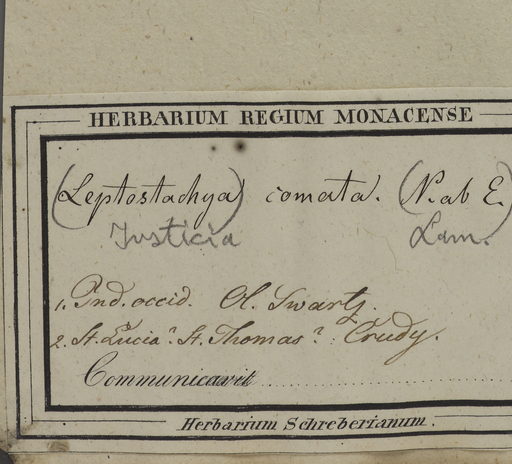 HERBARIUM REGIUM MONACENSE
(Leptostachya) comata. (N. ab E.
Justicia Lam.
1. Ind. occid. Ol. Swartz.
2. St. Lucia? St. Thomas? Crudy.
Communicavit
Herbarium Schreberianum.